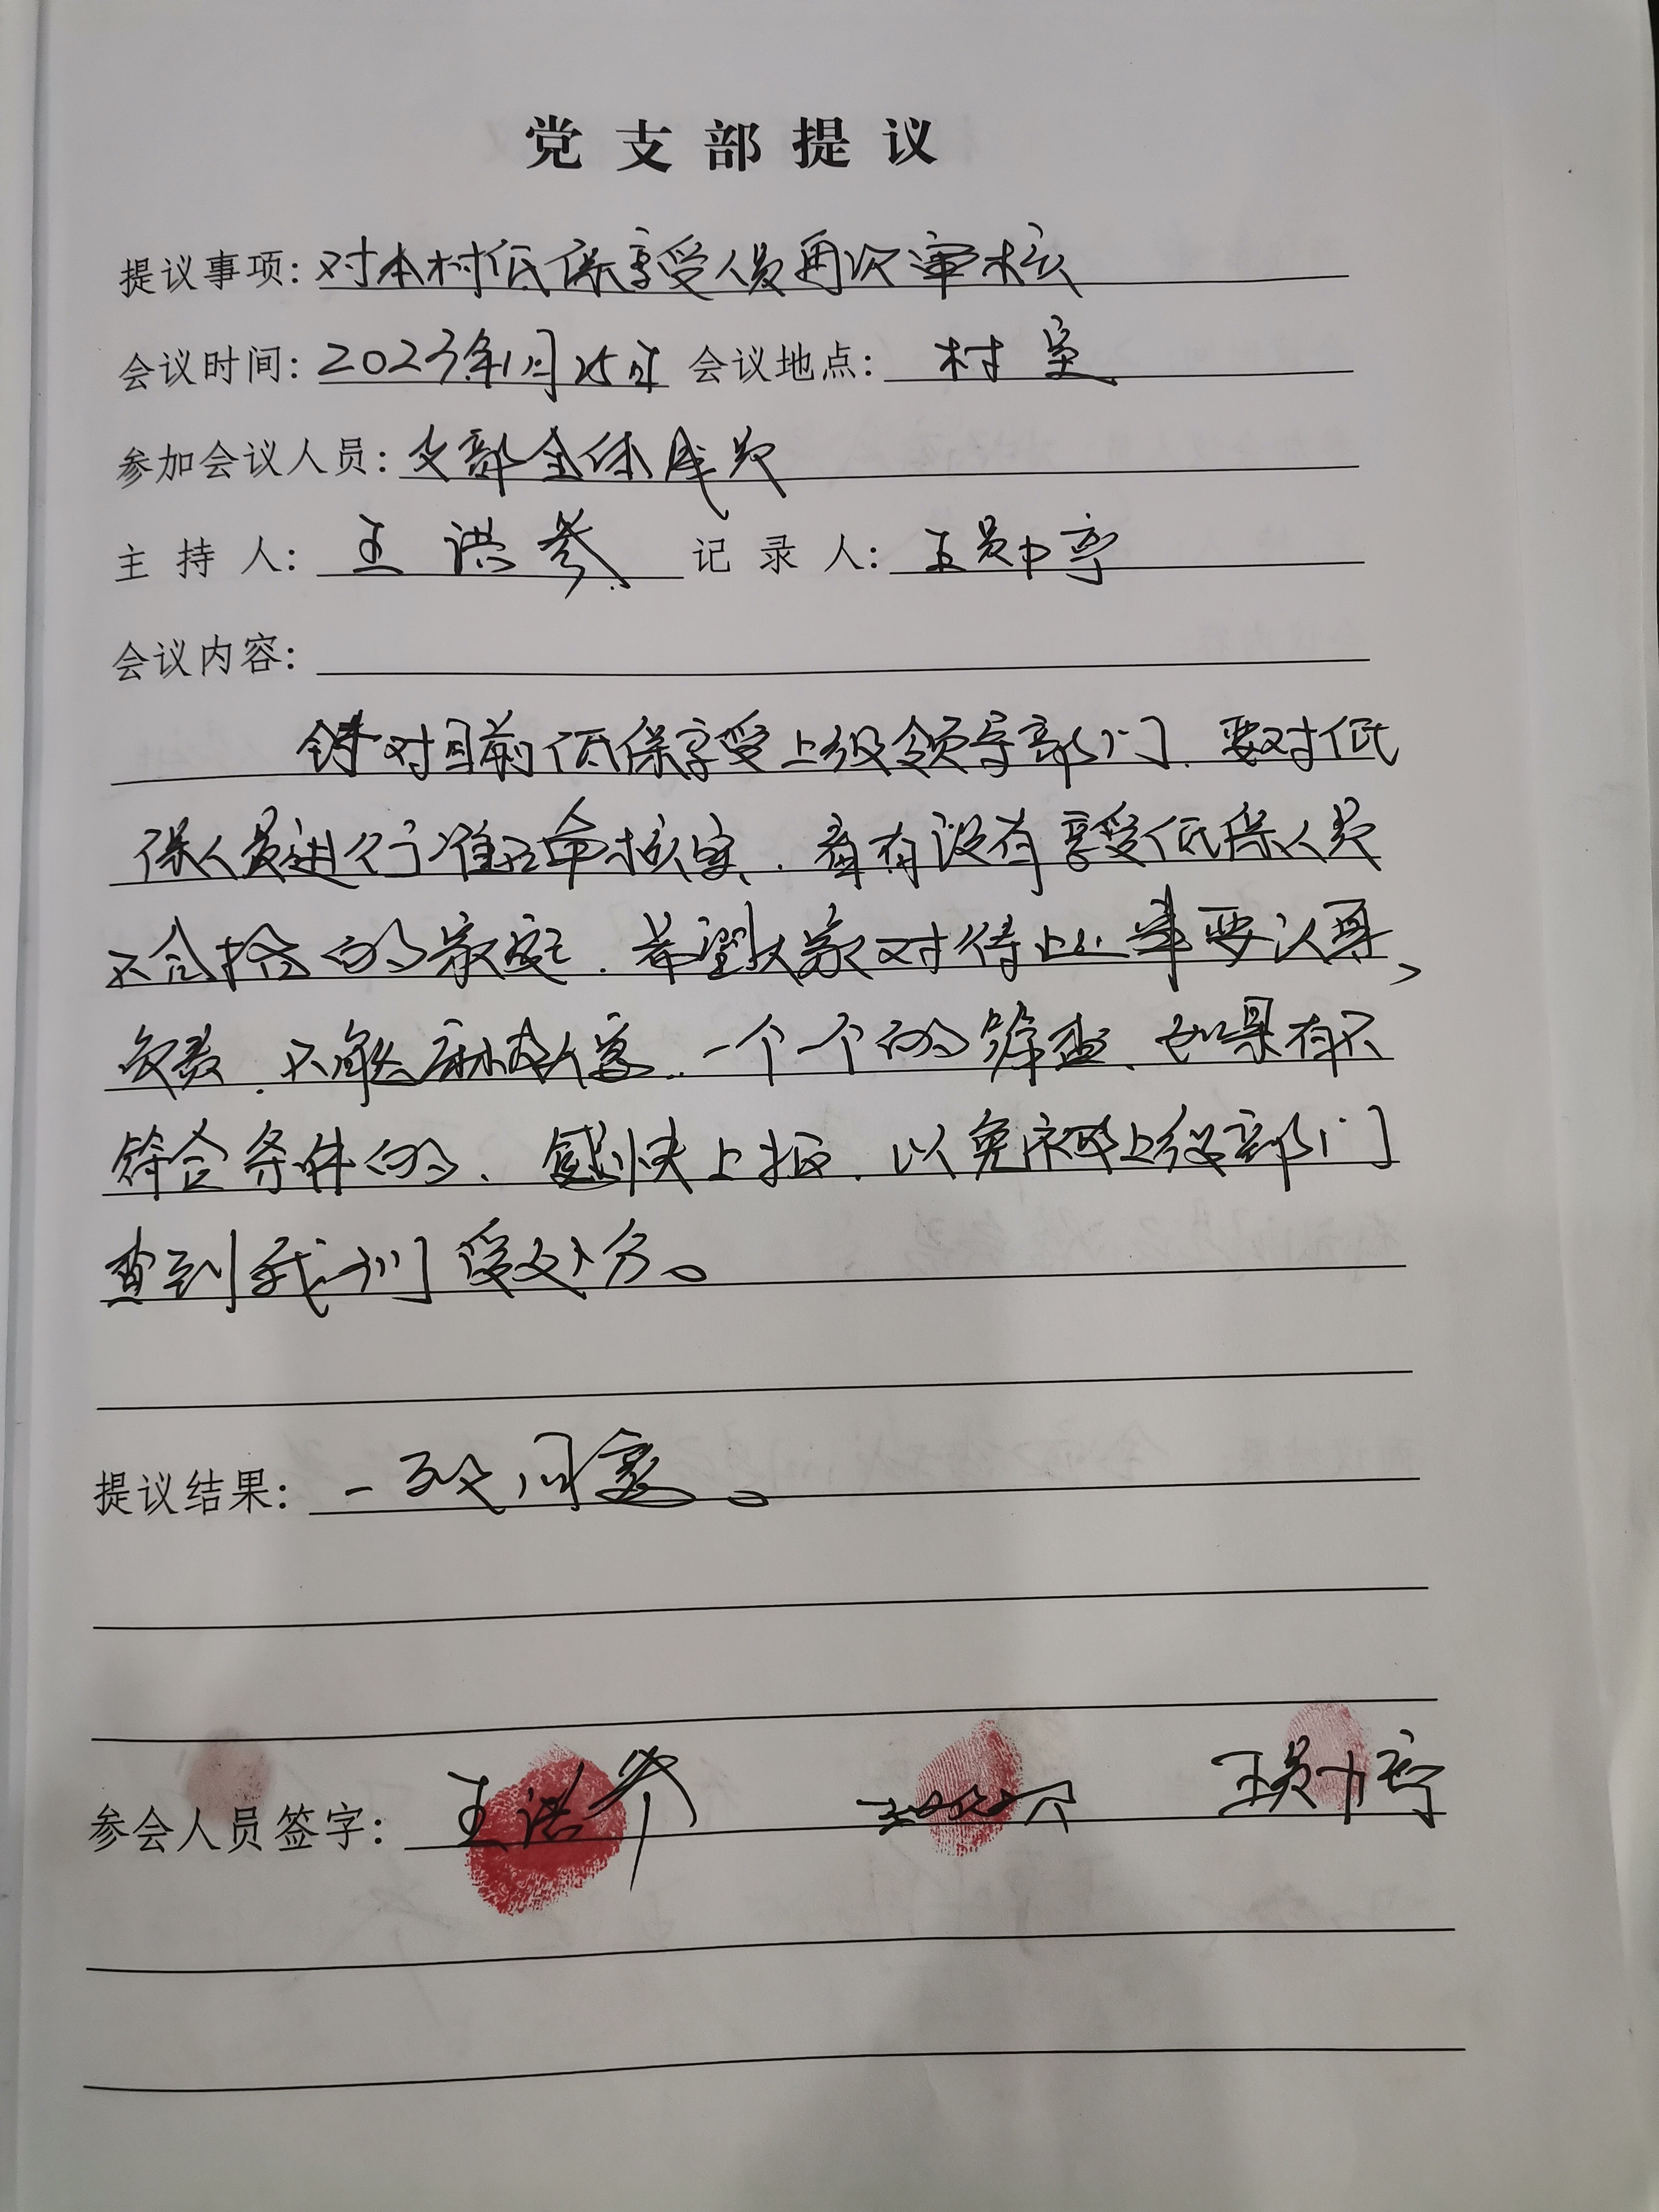 党支部提议
提议事项：对本村低保享受人员再次审核
会议时间：2023年11月25日 会议地点：村室
参加会议人员：支部全体成员
主持人：王洪参 记录人：王
会议内容：
针对目前低保享受上级领导部门、要对低
保人员进行准确核实、看有没有享受低保人员
不合格的家庭、希望大家对待此事要认真，
负责、不能麻痹大意、一个一个的筛查、如果有不
符合条件的、尽快上报、以免上级部门
查到我们受处分。
提议结果：一致同意。
参会人员签字：王洪参 王